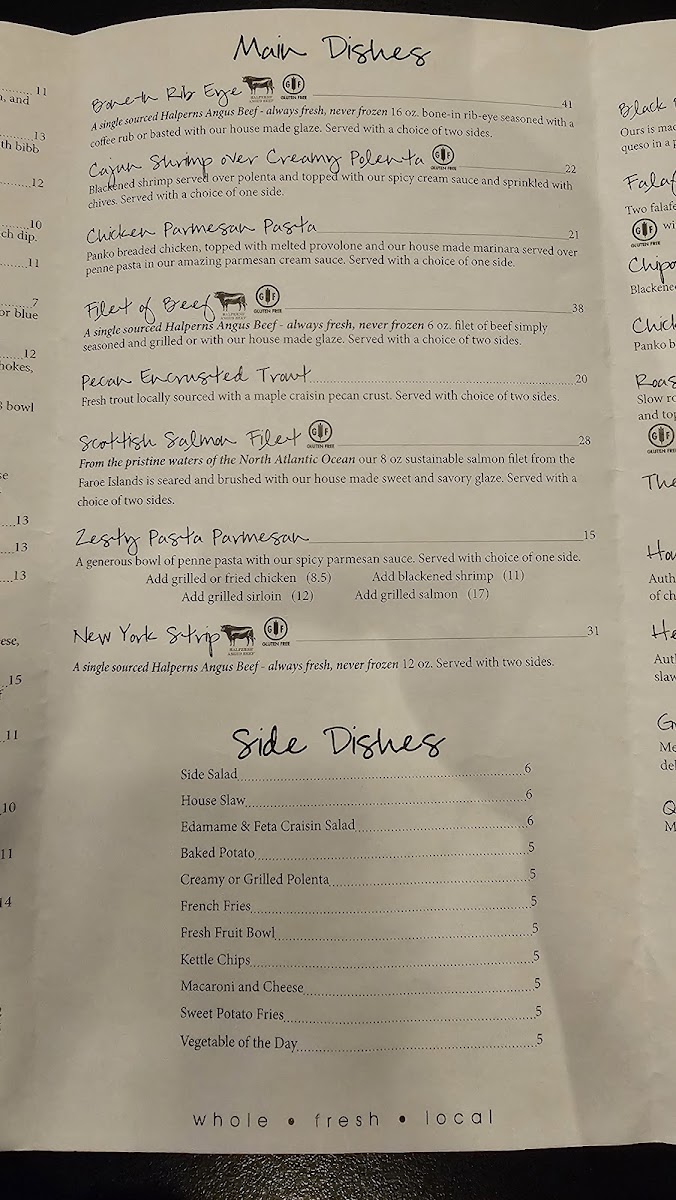 Main Dishes
Bone-In Rib Eye HALPERNS' ANGUS BEEF GF GLUTEN FREE 41
A single sourced Halperns Angus Beef - always fresh, never frozen 16 oz. bone-in rib-eye seasoned with a
coffee rub or basted with our house made glaze. Served with a choice of two sides.
Cajun Shrimp over Creamy Polenta GF GLUTEN FREE 22
Blackened shrimp served over polenta and topped with our spicy cream sauce and sprinkled with
chives. Served with a choice of one side.
Chicken Parmesan Pasta 21
Panko breaded chicken, topped with melted provolone and our house made marinara served over
penne pasta in our amazing parmesan cream sauce. Served with a choice of one side.
Filet of Beef HALPERNS' ANGUS BEEF GF GLUTEN FREE 38
A single sourced Halperns Angus Beef - always fresh, never frozen 6 oz. filet of beef simply
seasoned and grilled or with our house made glaze. Served with a choice of two sides.
Pecan Encrusted Trout 20
Fresh trout locally sourced with a maple craisin pecan crust. Served with choice of two sides.
Scottish Salmon Filet GF GLUTEN FREE 28
From the pristine waters of the North Atlantic Ocean our 8 oz sustainable salmon filet from the
Faroe Islands is seared and brushed with our house made sweet and savory glaze. Served with a
choice of two sides.
Zesty Pasta Parmesan 15
A generous bowl of penne pasta with our spicy parmesan sauce. Served with choice of one side.
Add grilled or fried chicken (8.5) Add blackened shrimp (11)
Add grilled sirloin (12) Add grilled salmon (17)
New York Strip HALPERNS' ANGUS BEEF GF GLUTEN FREE 31
A single sourced Halperns Angus Beef - always fresh, never frozen 12 oz. Served with two sides.
Side Dishes
Side Salad 6
House Slaw 6
Edamame & Feta Craisin Salad 6
Baked Potato 5
Creamy or Grilled Polenta 5
French Fries 5
Fresh Fruit Bowl 5
Kettle Chips 5
Macaroni and Cheese 5
Sweet Potato Fries 5
Vegetable of the Day 5
whole • fresh • local
11
, and
13
th bibb
12
10
ch dip.
11
7
or blue
12
hokes,
bowl
13
13
13
ese,
15
11
10
11
14
Black
Ours is mad
queso in a p
Falaf
Two falafe
GF wi
GLUTEN FREE
Chipo
Blackene
Chick
Panko b
Roas
Slow ro
and top
GF
GLUTEN FREE
The
Ho
Auth
of ch
He
Aut
slaw
Me
del
Q
M